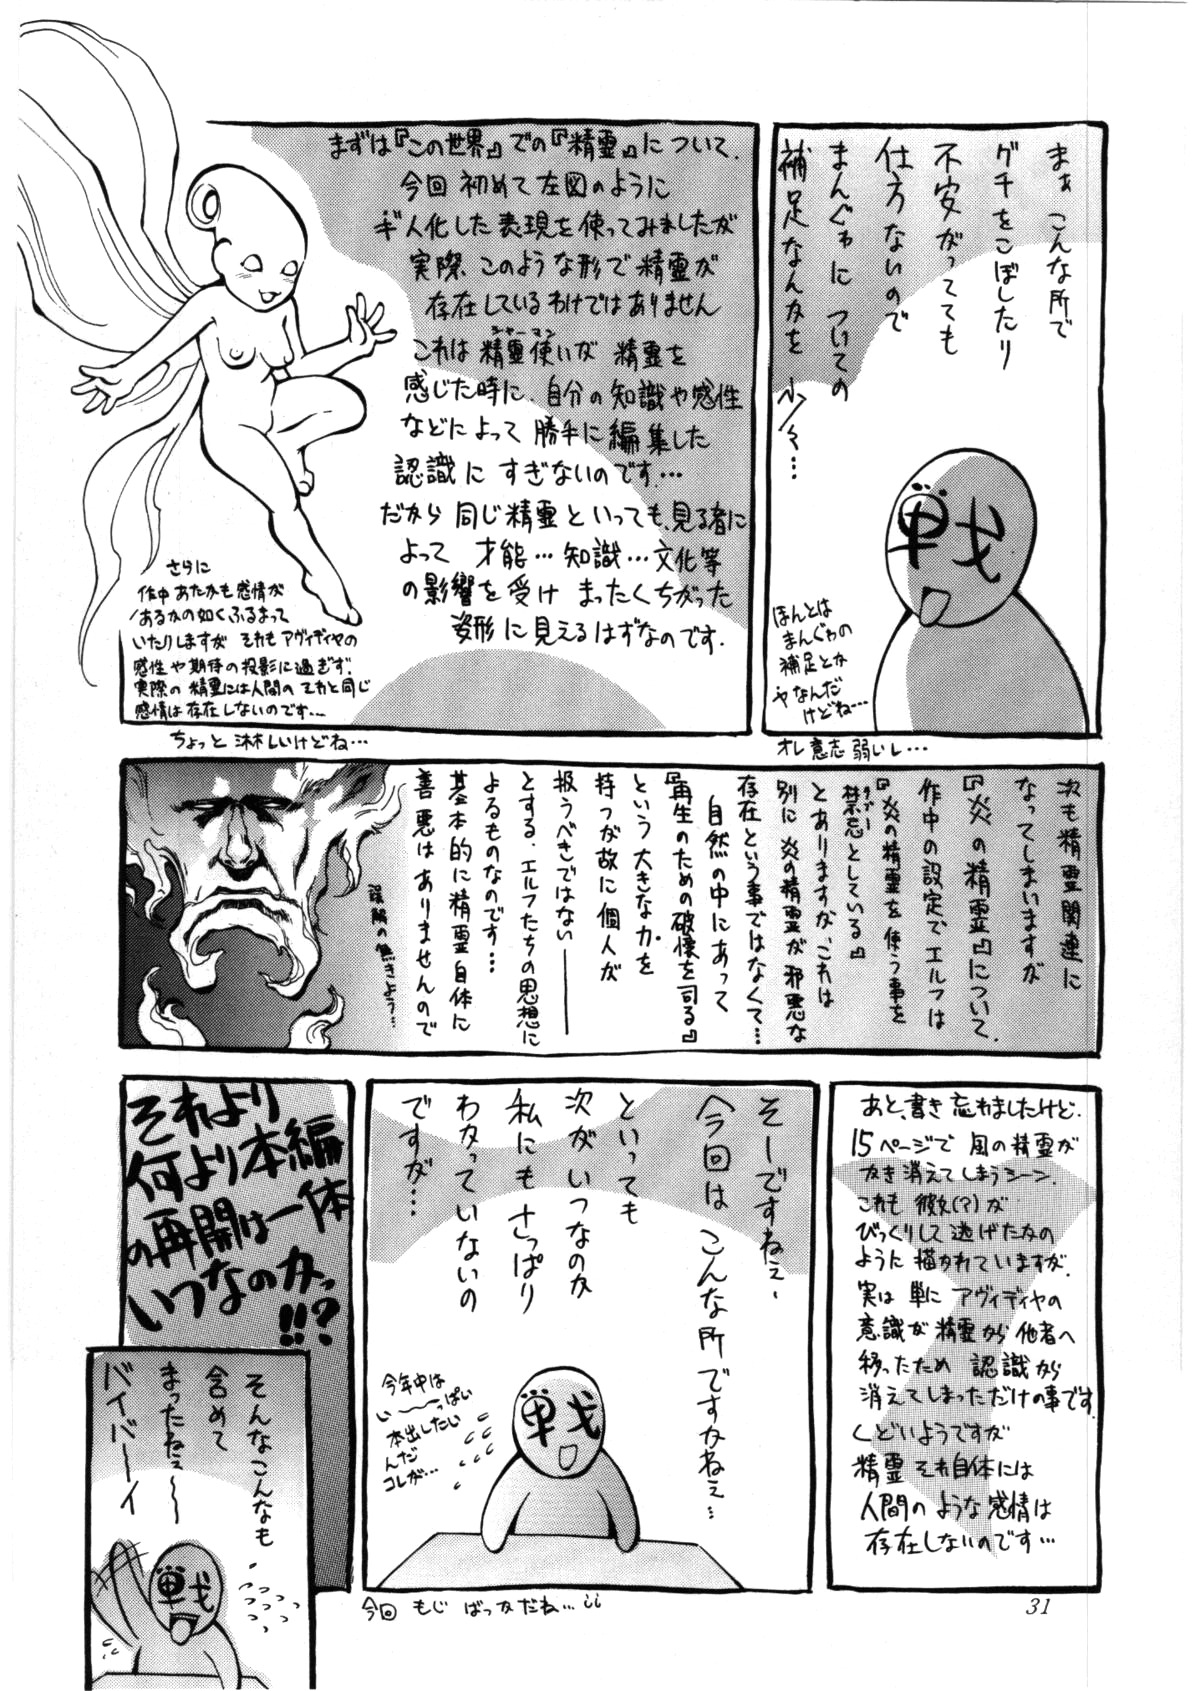 まぁ こんな所で
グチをこぼしたり
不安がってても
仕方ないので
まんぐゎに ついての
補足なんかを 少々…
ほんとは
まんぐゎの
補足とか
ヤなんだ
けどね…
オレ意志弱いし…
まずは『この世界』での『精霊』について.
今回 初めて左図のように
ギ人化した表現を使ってみましたが
実際、このような形で精霊が
存在しているわけではありません
シャーマン
これは 精霊使いが 精霊を
感じた時に、自分の知識や感性
などによって 勝手に編集した
認識に すぎないのです…
だから 同じ精霊といっても、見る者に
よって 才能…知識…文化等
の影響を受け まったくちがった
姿形に見えるはずなのです.
さらに
作中 あたかも感情が
あるかの如くふるまって
いたりしますが それも アヴィディヤの
感性や期待の投影に過ぎず.
実際の 精霊には人間の それと同じ
感情は存在しないのです…
ちょっと 淋しいけどね…
次も精霊関連に
なってしまいますが
『炎の精霊』について.
作中の設定で エルフは
『炎の精霊を使う事を
タブー
禁忌としている』
とありますが、これは
別に 炎の精霊が 邪悪な
存在という事ではなくて…
自然の中にあって
『再生のための破壊を司る』
という大きな力を
持つが故に 個人が
扱うべきではない――
とする、エルフたちの思想に
よるものなのです…
基本的に精霊自体に
善悪はありませんので
誤解の無きよう…
あと、書き忘れましたけど.
15ページで 風の精霊が
かき消えてしまうシーン.
これも 彼女(?)が
びっくりして逃げたかの
ように 描かれていますが.
実は 単に アヴィディヤの
意識が 精霊から 他者へ
移ったため 認識から
消えてしまっただけの事です.
くどいようですが
精霊 それ自体には
人間の ような感情は
存在しないのです…
そーですねぇ、
今回は こんな所ですかねぇ…
といっても
次が いつなのか
私にも さっぱり
わかっていないの
ですが…
今年中は
い〜〜っぱい
本出したい
んだ
コレが…
今回 もじ ばっかだね…
それより
何より本編
の再開は一体
いつなのかっ
!!?
そんなこんなも、
含めて
まったねェ〜〜
バイバーイ
戦
戦
戦
31